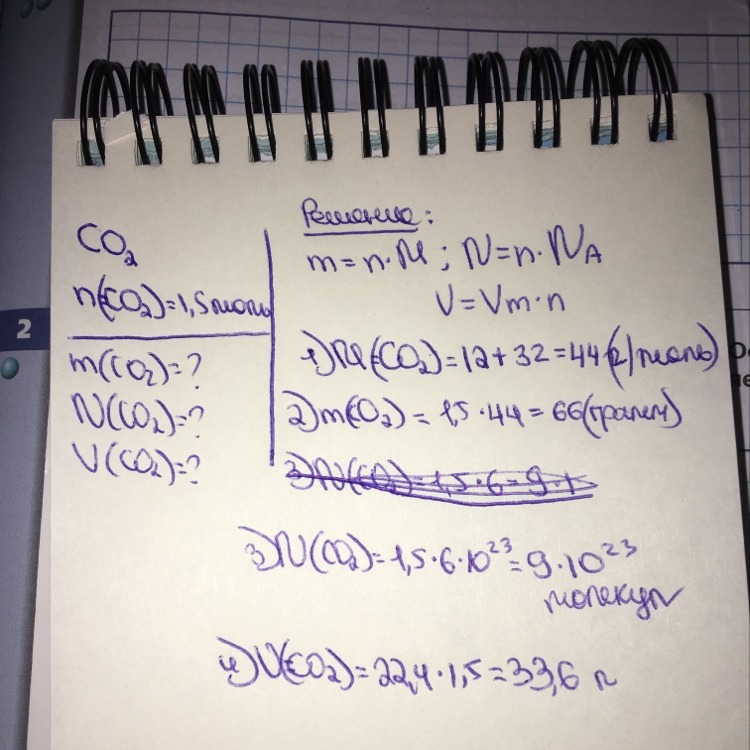 CO₂
n(CO₂)=1,5моль
m(CO₂)=?
N(CO₂)=?
V(CO₂)=?
Решение:
m=n·M; N=n·N_A
V=Vm·n
1)M(CO₂)=12+32=44(г/моль)
2)m(CO₂)=1,5·44=66(грамм)
3)N(CO₂)=1,5·6=9·1
3)N(CO₂)=1,5·6·10²³=9·10²³
молекул
4)V(CO₂)=22,4·1,5=33,6 л
2